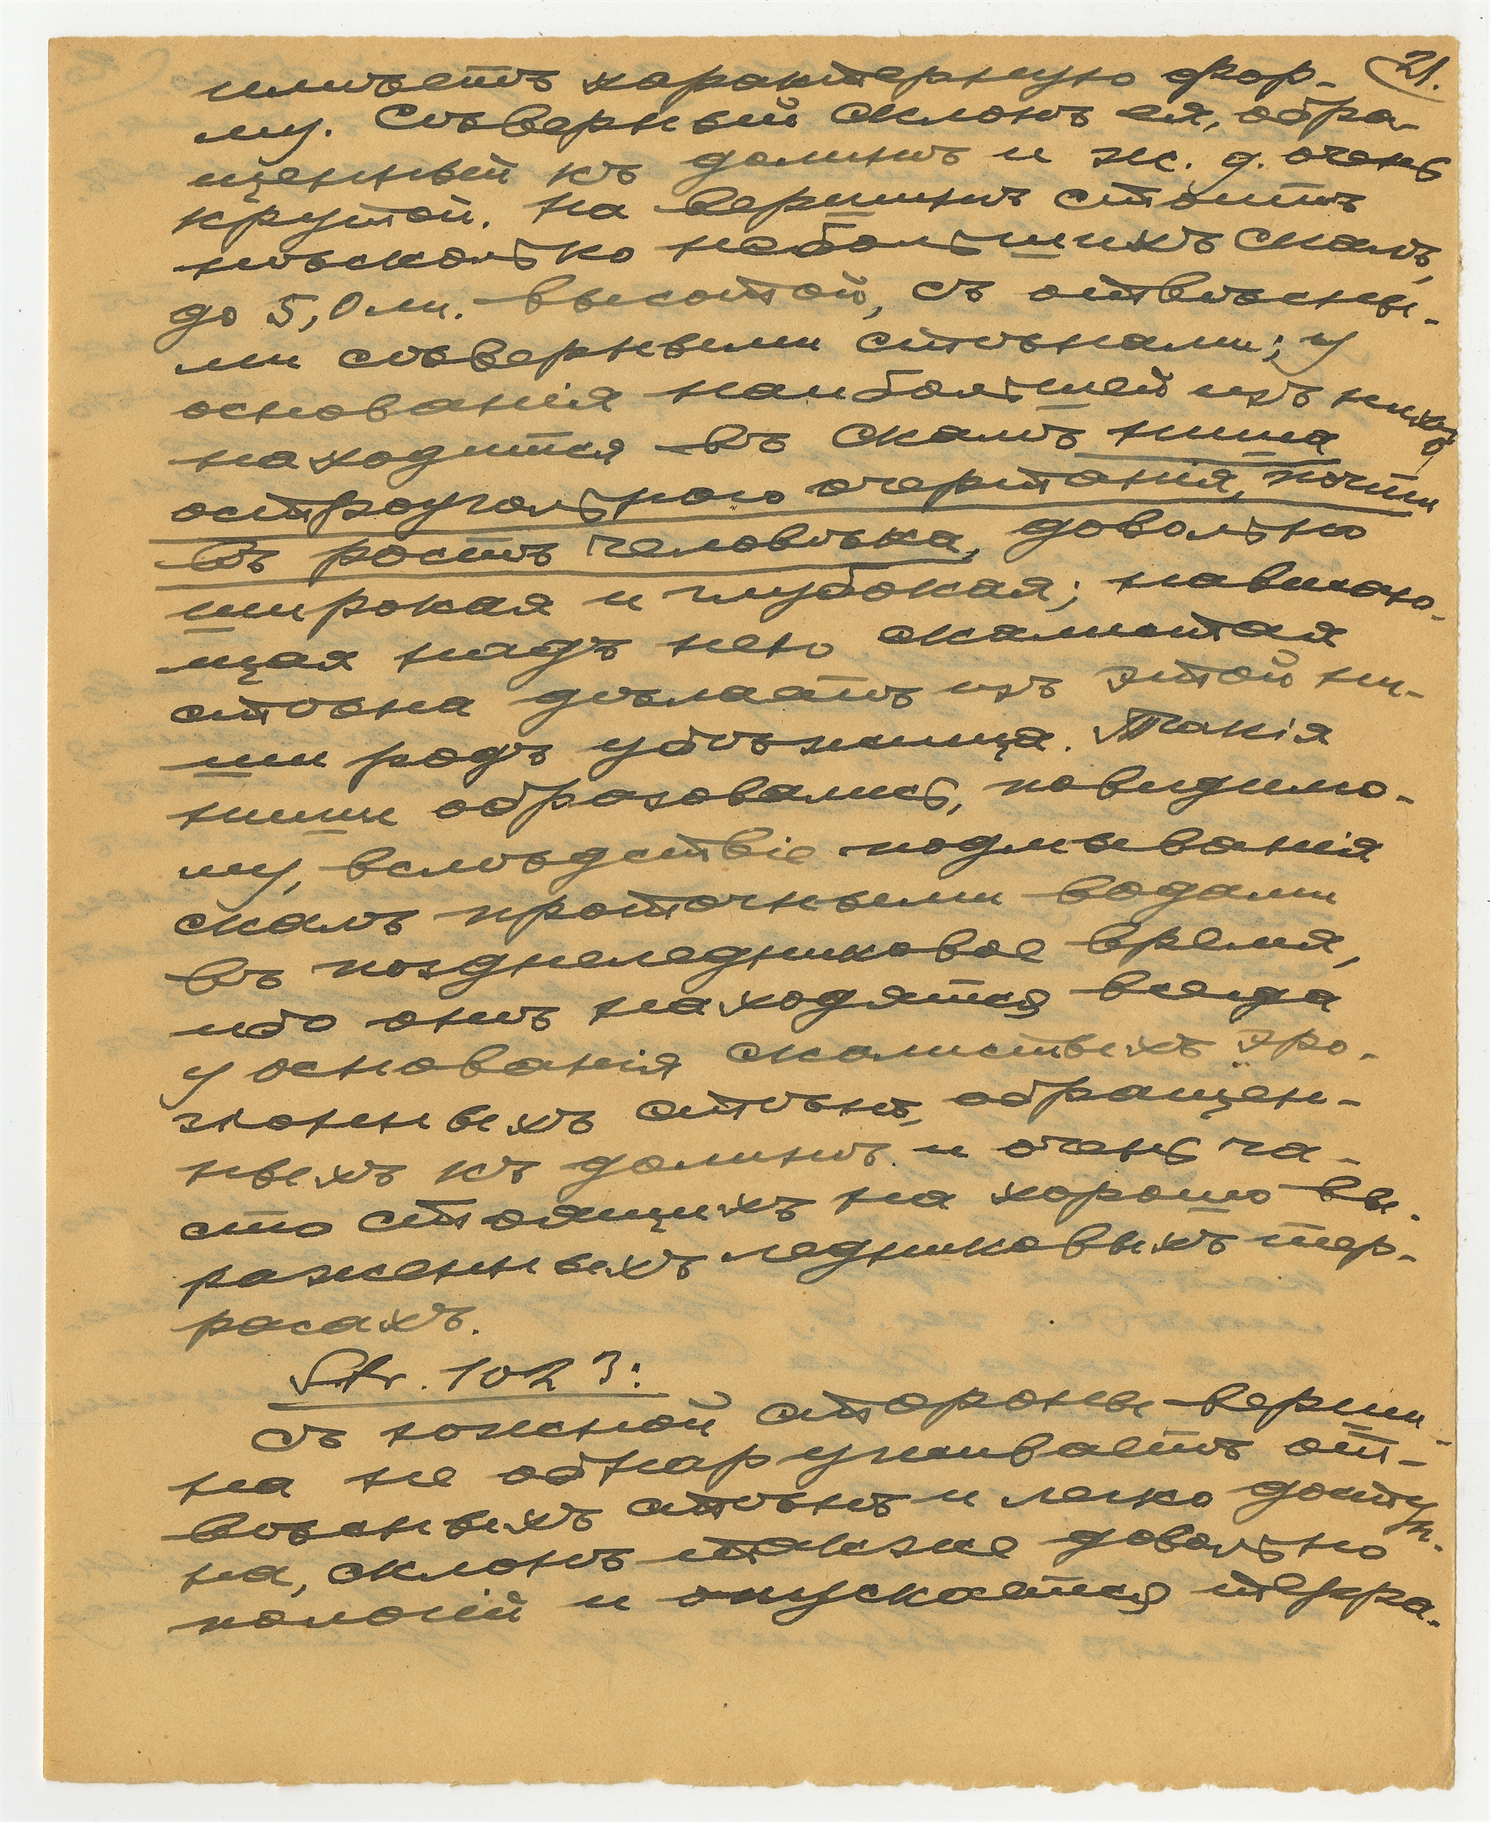 21.
имѣетъ характерную фор-
му. Сѣверный склонъ ея, обра-
щенный къ долинѣ и ж. д. очень
крутой. На вершинѣ стоитъ
нѣсколько небольшихъ скалъ,
до 5,0 м. высотой, съ отвѣсны-
ми сѣверными стѣнами; у
основанія наибольшей изъ нихъ
находится въ скалѣ ниша
остроугольного очертанія, почти
въ ростъ человѣка, довольно
широкая и глубокая; нависаю-
щая надъ нею скалистая
стѣна дѣлаетъ изъ этой ни-
ши родъ убѣжища. Такія
ниши образовались, повидимо-
му, вслѣдствіе подмыванія
скалъ проточными водами
въ позднеледниковое время,
ибо онѣ находятся всегда
у основанія скалистыхъ эро-
зіонныхъ стѣнъ, обращен-
ныхъ къ долинѣ и очень ча-
сто стоящихъ на хорошо вы-
раженныхъ ледниковыхъ тер-
расахъ.
Str. 1023:
Съ южной стороны верши-
на не обнаруживаетъ от-
вѣсныхъ стѣнъ и легко доступ-
на, склонъ также довольно
пологій и опускается терра-